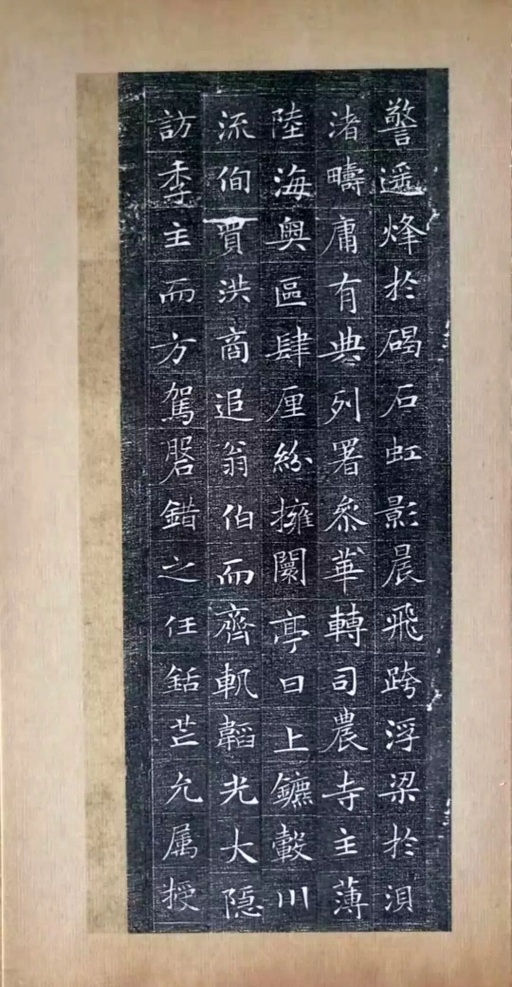 警遥烽於碣石虹影晨飛跨浮梁於浿
渚疇庸有典列署叅華轉司農寺主薄
陸海奥區肆厘紛擁闤亭日上鑣轂川
流佝買洪商追翁伯而齊軌韜光大隱
訪季主而方駕磐錯之任銛芒允属授